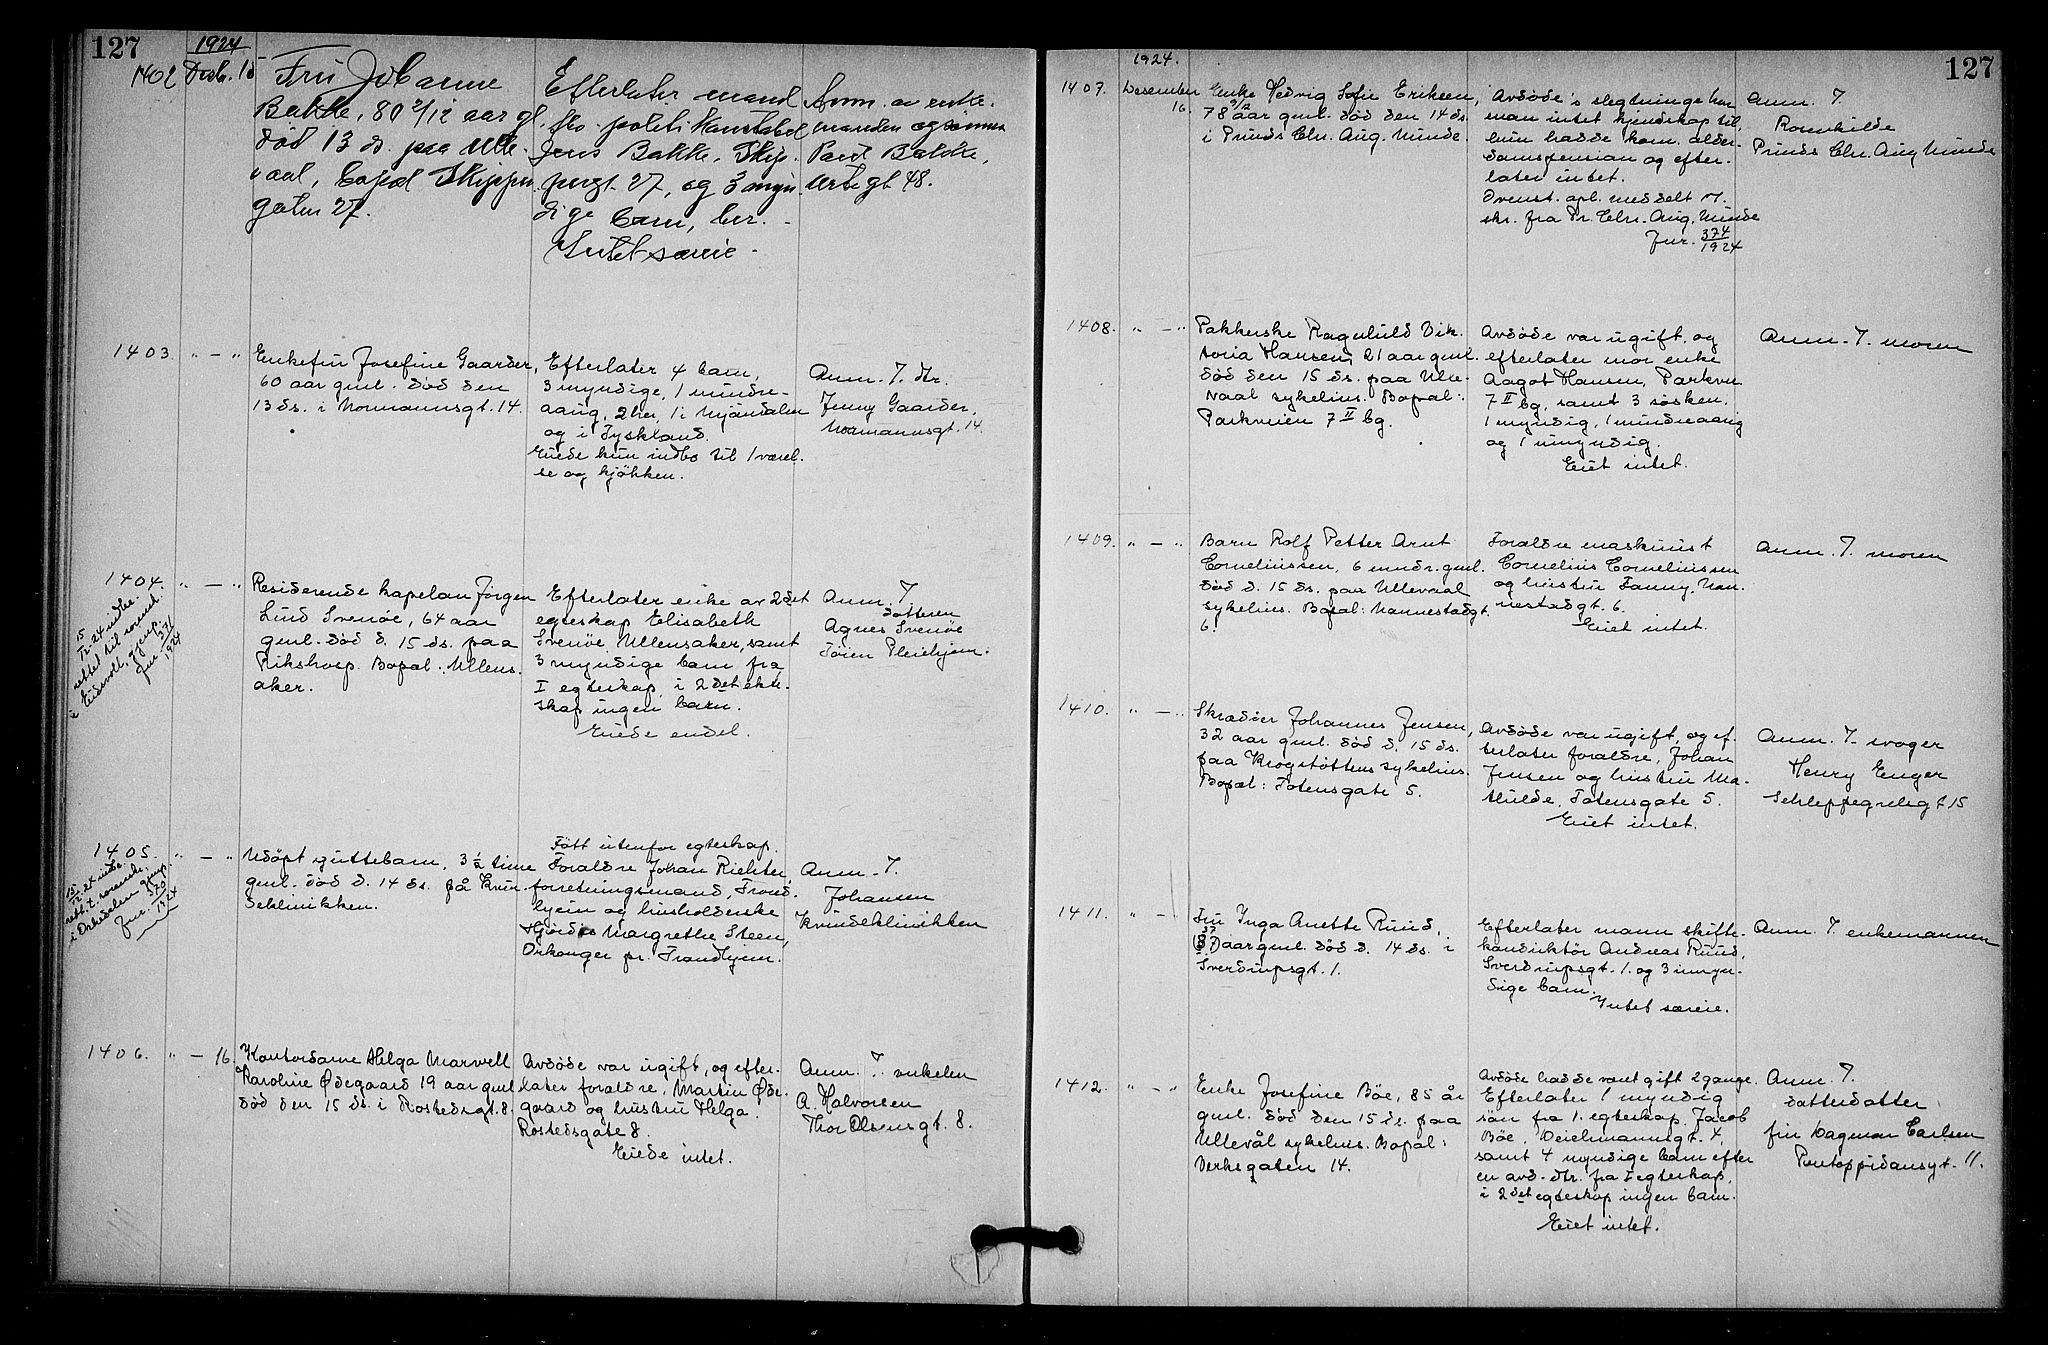 127
1924
1402 Desbr. 15
Fru Johanne
Bakke, 80 2/12 aar gl.
död 13 ds. paa Ulle-
vaal, bopæl Skipper
gaten 27.
Efterlater mand
fhv. politikonstabel
Jens Bakke, Skip-
pergt. 27, og 3 myn-
dige barn, her. -
Intet særeie -
Anm. av enke-
manden og sönnen
Paul Bakke,
Urtegt 48.
1403. " - "
Enkefru Josefine Gaarder,
60 aar gml. död den
13 ds. i Normannsgt. 14.
Efterlater 4 barn,
3 myndige, 1 mindre-
aarig, 2 her, 1 i Mjöndalen
og i Tyskland.
Eiede kun indbo til 1 værel-
se og kjökken.
Anm. T. dtr.
Jenny Gaarder,
Normannsgt. 14.
1404. " - "
15/12-24 indbe.
rettet til sorenst.
i Eidsvoll, gjenp.
Jnr. 371/1924
Residerende kapelan Jörgen
Lund Svenöe, 64 aar
gml. död d. 15 ds. paa
Rikshosp. Bopæl: Ullens-
aker.
Efterlater enke av 2det
egteskap Elisabeth
Svenöe, Ullensaker, samt
3 myndige barn fra
I egteskap, i 2det ekte-
skap ingen barn.
Eiede endel.
Anm. T
datteren
Agnes Svenöe
Töien Pleiehjem.
1405. " - "
15/12-24 indbe.
rett. t. sorenskr.
i Orkedalen gjenp.
Jnr. 370/1924
Udöpt guttebarn, 3 1/2 time
gml. död d. 14 ds. på Kvin-
deklinikken.
Född utenfor egteskap.
Foraldre Johan Richter,
forretningsmand, Trond-
hjem og husholderske
Hjördis Margrethe Steen,
Orkanger pr. Trondhjem.
Anm. T.
Johansen
Kvindeklinikken
1406. " - 16.
Kontordame Helga Marvell
Karoline Ödegaard 19 aar gml
död den 15 ds. i Rostedsgt. 8.
Avdöde var ugift, og efter-
later foraldre, Martin Öde-
gaard og hustru Helga.
Rostedsgate 8.
Eiede intet.
Anm. T. onkelen
A. Halvorsen
Thor Olsensgt. 8.
127
1924.
1407. Desember 16.
Enke Hedvig Sofie Eriksen,
78 9/12 aar gml. död den 14 ds.
i Prinds Chr. Aug. Minde.
Avdöde's slegtninge har
man intet kjendskap til,
hun hadde kom. alder-
domspension og efter-
later intet.
Ovenst. opl. meddelt i
skr. fra Pr. Chr. Aug. Minde
Jnr. 374/1924
Anm. T.
Rosenkilde
Prinds Chr. Aug Minde
1408. " - "
Pakkerske Ragnhild Vik-
toria Hansen, 21 aar gml.
död den 15 ds. paa Ulle-
vaal sykehus. Bopæl:
Parkveien 7 II bg.
Avdöde var ugift, og
efterlater mor enke
Aagot Hansen, Parkvn.
7 II bg, samt 3 søsken.
1 myndig, 1 mindreaarig
og 1 umyndig.
Eiet intet.
Anm. T. moren
1409. " - "
Barn Rolf Petter Arnt
Corneliussen, 6 mndr. gml.
död d. 15 ds. paa Ullevaal
sykehus. Bopæl: Mannestadgt.
6.
Foraldre maskinist
Cornelius Corneliussen
og hustru Fanny, Man-
nestadgt. 6.
Eiet intet.
Anm. T. moren
1410. " - "
Skrædder Johannes Jensen,
32 aar gml. död d. 15 ds.
paa Krogstöttens sykehus.
Bopæl: Totensgate 5.
Avdöde var ugift, og ef-
terlater foraldre, Johan
Jensen og hustru Ma-
thilde, Totensgate 5.
Eiet intet.
Anm. T. svoger
Henry Enger
Schleppegrellsgt 15
1411. " - "
Fru Inga Anette Ruud,
37 aar gml. död d. 14 ds. i
Sverdrupsgt. 1.
Efterlater mann skifte-
konduktör Andreas Ruud,
Sverdrupsgt. 1. og 3 umyn-
dige barn.
Intet særeie.
Anm. T. enkemannen
1412. " - "
Enke Josefine Böe, 85 år
gml. död den 15 ds. paa
Ullevål sykehus. Bopæl:
Verksgaten 14.
Avdöde hadde vært gift 2 gange.
Efterlater 1 myndig
sön fra 1. egteskap, Jacob
Böe, Deichmannsgt. 4,
samt 4 myndige barn efter
en avd. dtr. fra I egteskap,
i 2det egteskap ingen barn.
Eiet intet.
Anm. T.
datterdatter
fru Dagmar Carlsen
Pontoppidansgt. 11.